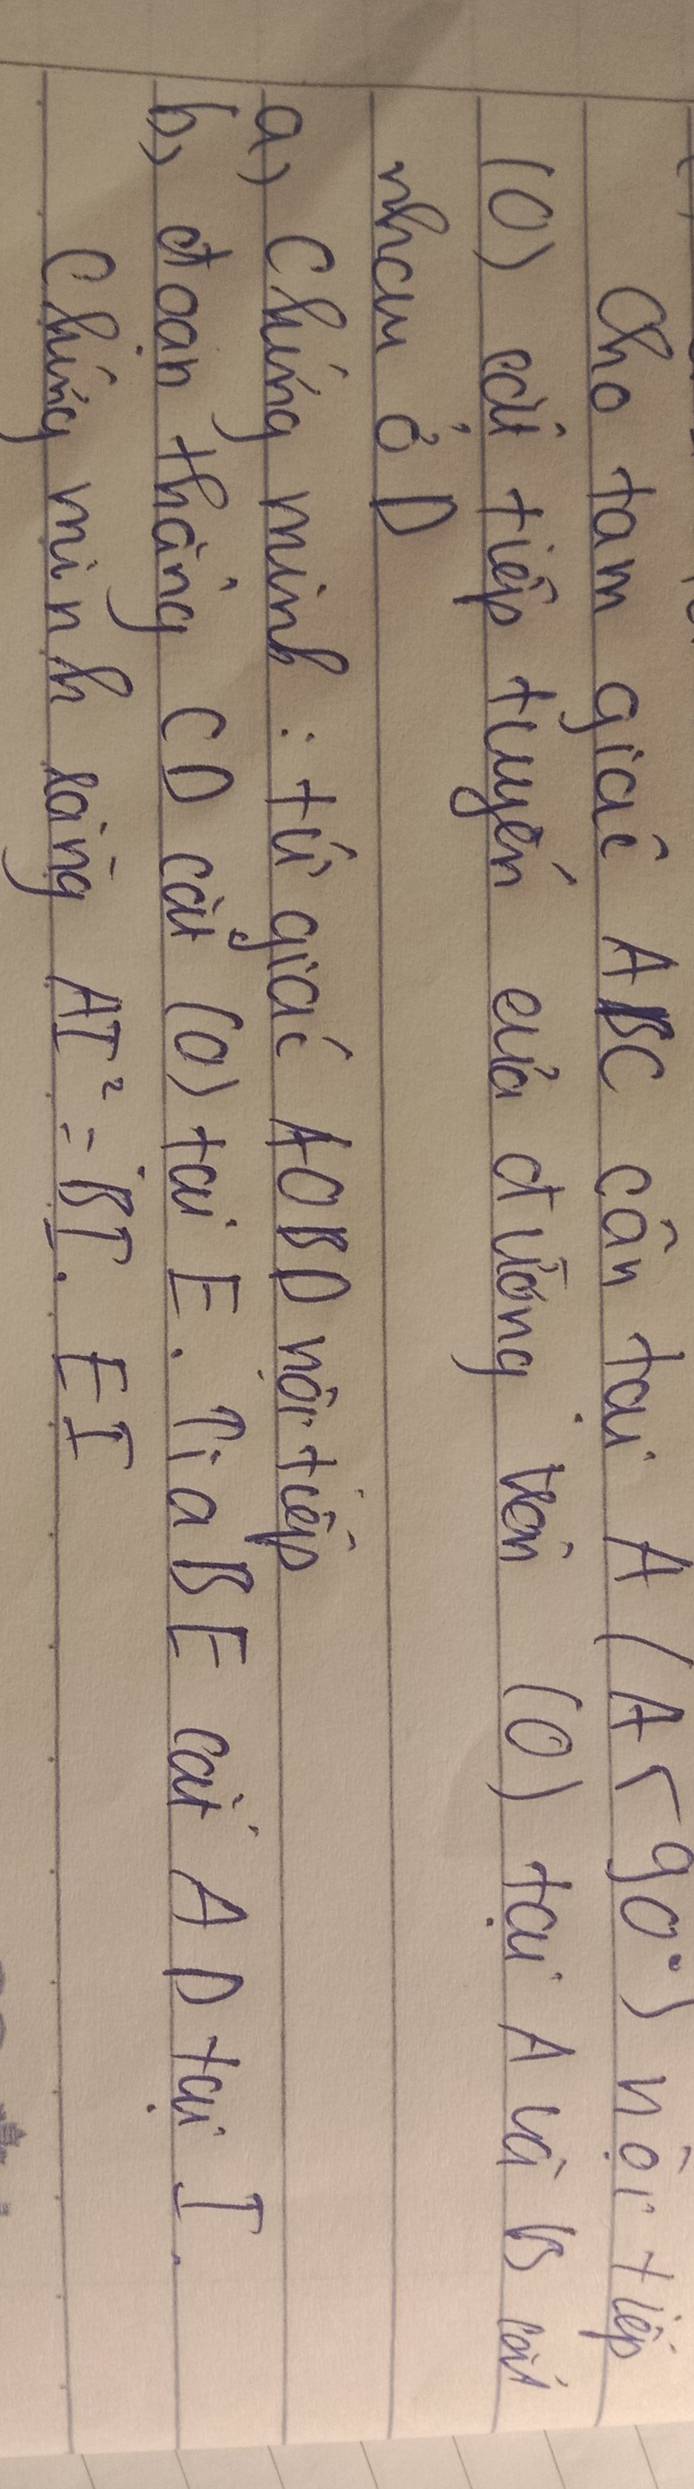 Cho tam giác ABC cân tại A (A < 90°) nội tiếp
(O) các tiếp tuyến của đường tròn (O) tại A và B cắt
nhau ở D
a, Chứng minh : tứ giác AOBD nội tiếp
b, đoạn thẳng CD cắt (O) tại E. Tia BE cắt AD tại I.
Chứng minh rằng AI² = BI. EI